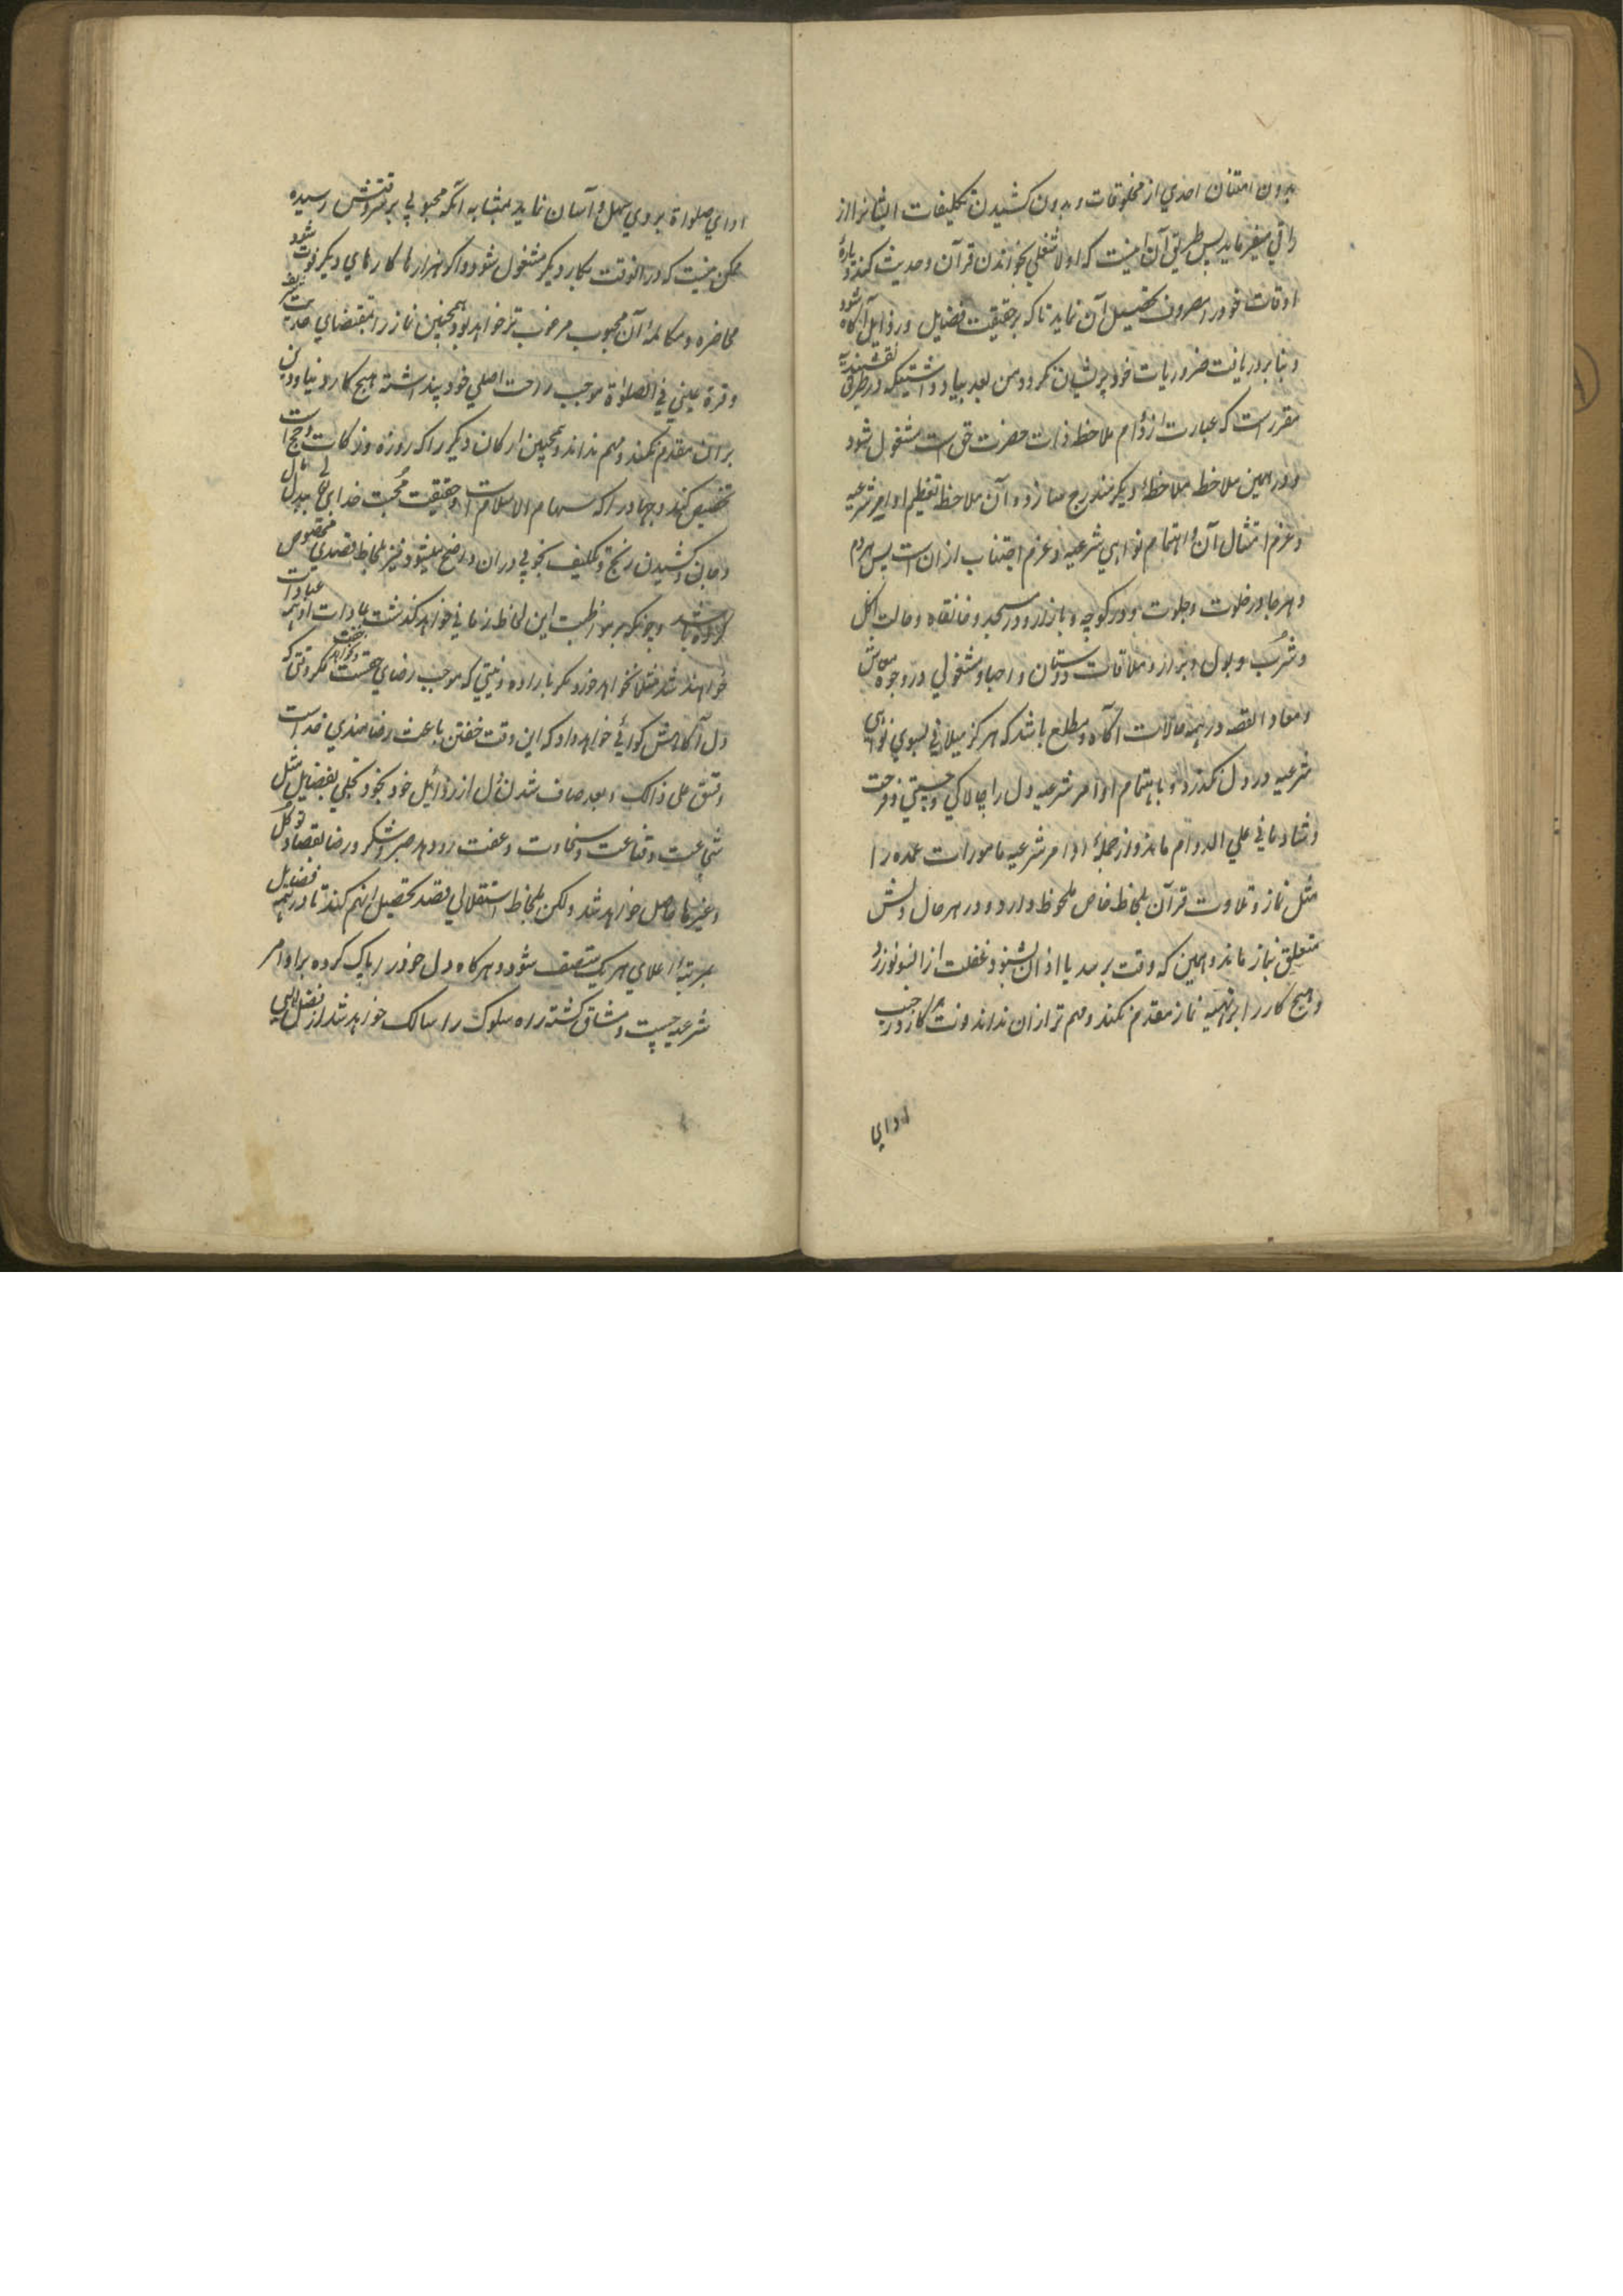 بدون امتنان احدي از مخلوقات و بدون کشیدن تکلیفات ایشانرا از
راقي میفرماید پس طریق آن اینست که اولا شغلي بخواندن قرآن و حدیث کند و پارۀ
اوقات خود را مصروف تحصیل آن نماید تا که بر حقیقت فضایل و رذایل آگاه شود
و بنا بر دریافت ضروریات خود پریشان نکردد و من بعد بیاد داشتیکه در طریق نقشبندیه
مقرر است که عبارت از دوام ملاحظه ذات حضرت حق است مشغول شود
و در همین ملاحظه ملاحظۀ دیکر مندرج سازد و آن ملاحظه تعظیم اوامر شرعیه
و عزم امتثال آن و اهتمام نواهي شرعیه و عزم اجتناب از ان است پس هر دم
و هر جا در خلوت و جلوت و در کوچه و بازار و در مسجد و خانقاه و حالت اکل
و شرب و بول و براز و ملاقات دوستان و احبا و مشغولي در وجوه معاش
و معاد القصه در همه حالات آگاه و مطلع باشد که هرکز میلاني بسوي نواهي
شرعیه در دل نکذرد و باهتمام اوامر شرعیه دل را چالاکي و چستي و فرحت
و شادماني علي الدوام ماند و از جملۀ اوامر شرعیه مامورات عمده را
مثل نماز و تلاوت قرآن بلحاظ خاص ملحوظ دارد و در هر حال دلش
متعلق نماز ماند و همین که وقت برسد یا اذان بشنود غفلت ازانسو نورزد
و هیچ کار را بر تهیه نماز مقدم نکند و مهم تر ازان نداند و نت هر کاز در جنب
ادای
ادای صلواة بر وي سهل و آسان نماید بمثابه آنکه محبوبي بر سر وقتش رسیده
ممکن نیست که در انوقت بکار دیکر مشغول شود و اکر هزارها کارهاي دیکر فوت شود
محاضره و مکالمۀ آن محبوب مرغوب تر خواهد بود همچنین نماز را بمقتضاي حدیث شریف
و قرة عیني في الصلواة موجب راحت اصلي خود پنداشته هیچ کار دنیا و دین
بر ان مقدم نکند و مهم نداند و همچنین ارکان دیکر را که روزه و زکات و حج است
تخصیص کند و جهاد را که سنام الاسلام است و حقیقت محبت خداي تعالی ببذل مال
و جان و کشیدن رنج و تکلیف بخوبي در ان واضح میشود نیز بلحاظ قصدي مخصوص
کرده باشد و چونکه بر مواظبت این لحاظ زماني خواهد کذشت عادات او همه عبادات
خواهند شد مثلا نخواهد خورد مکر باراده و نیتي که موجب رضاي حق است و نخواهد خفت مکر وقتی که
دل آگاهش کواهي خواهد داد که این وقت خفتن باعث رضامندي خداست
و قس علی ذالک و بعد صاف شدن دل از رذائل خود بخود تجلي بفضایل مثل
شجاعت و قناعت و سخاوت و عفت رو دهد صبر و شکر و رضا بقضا و توکل
و غیرها حاصل خواهد شد ولکن بلحاظ استقلالي قصد تحصیل انهم کند تا در همه فضایل
بمرتبۀ اعلاي هر یک متصف شود و هرکاه دل خود را پاک کرده براوامر
شرعیه چست و مشتاق کشته راه سلوک را سالک خواهد شد از فضل الهي